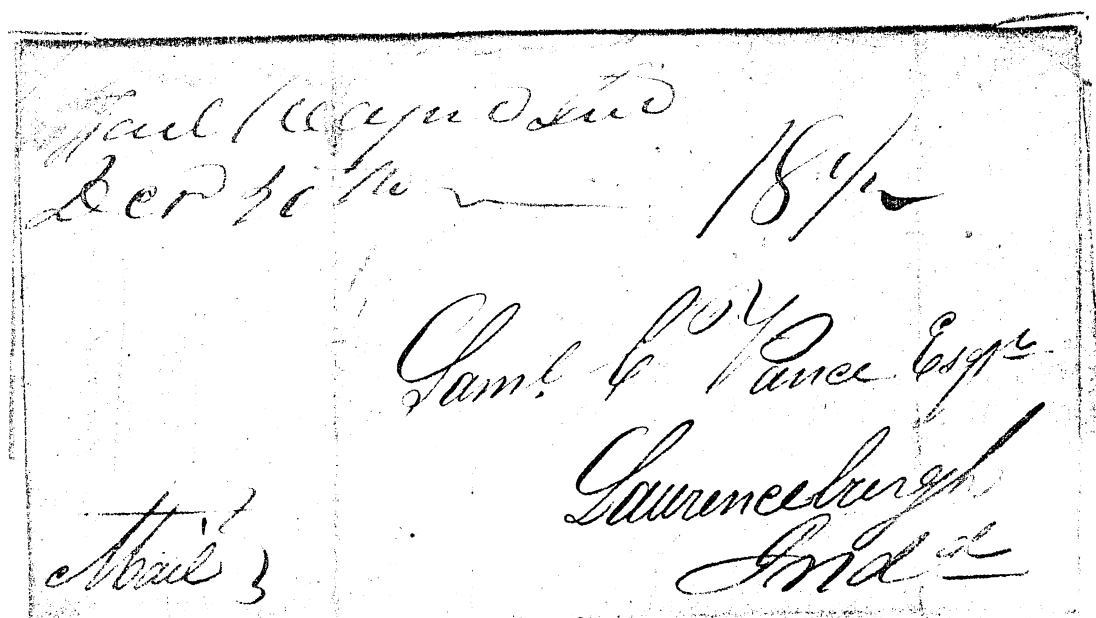 Fort Wayne Ind
Dec 18½
Saml. C Vance Esqr
Laurenceburgh
Indd
Mail }